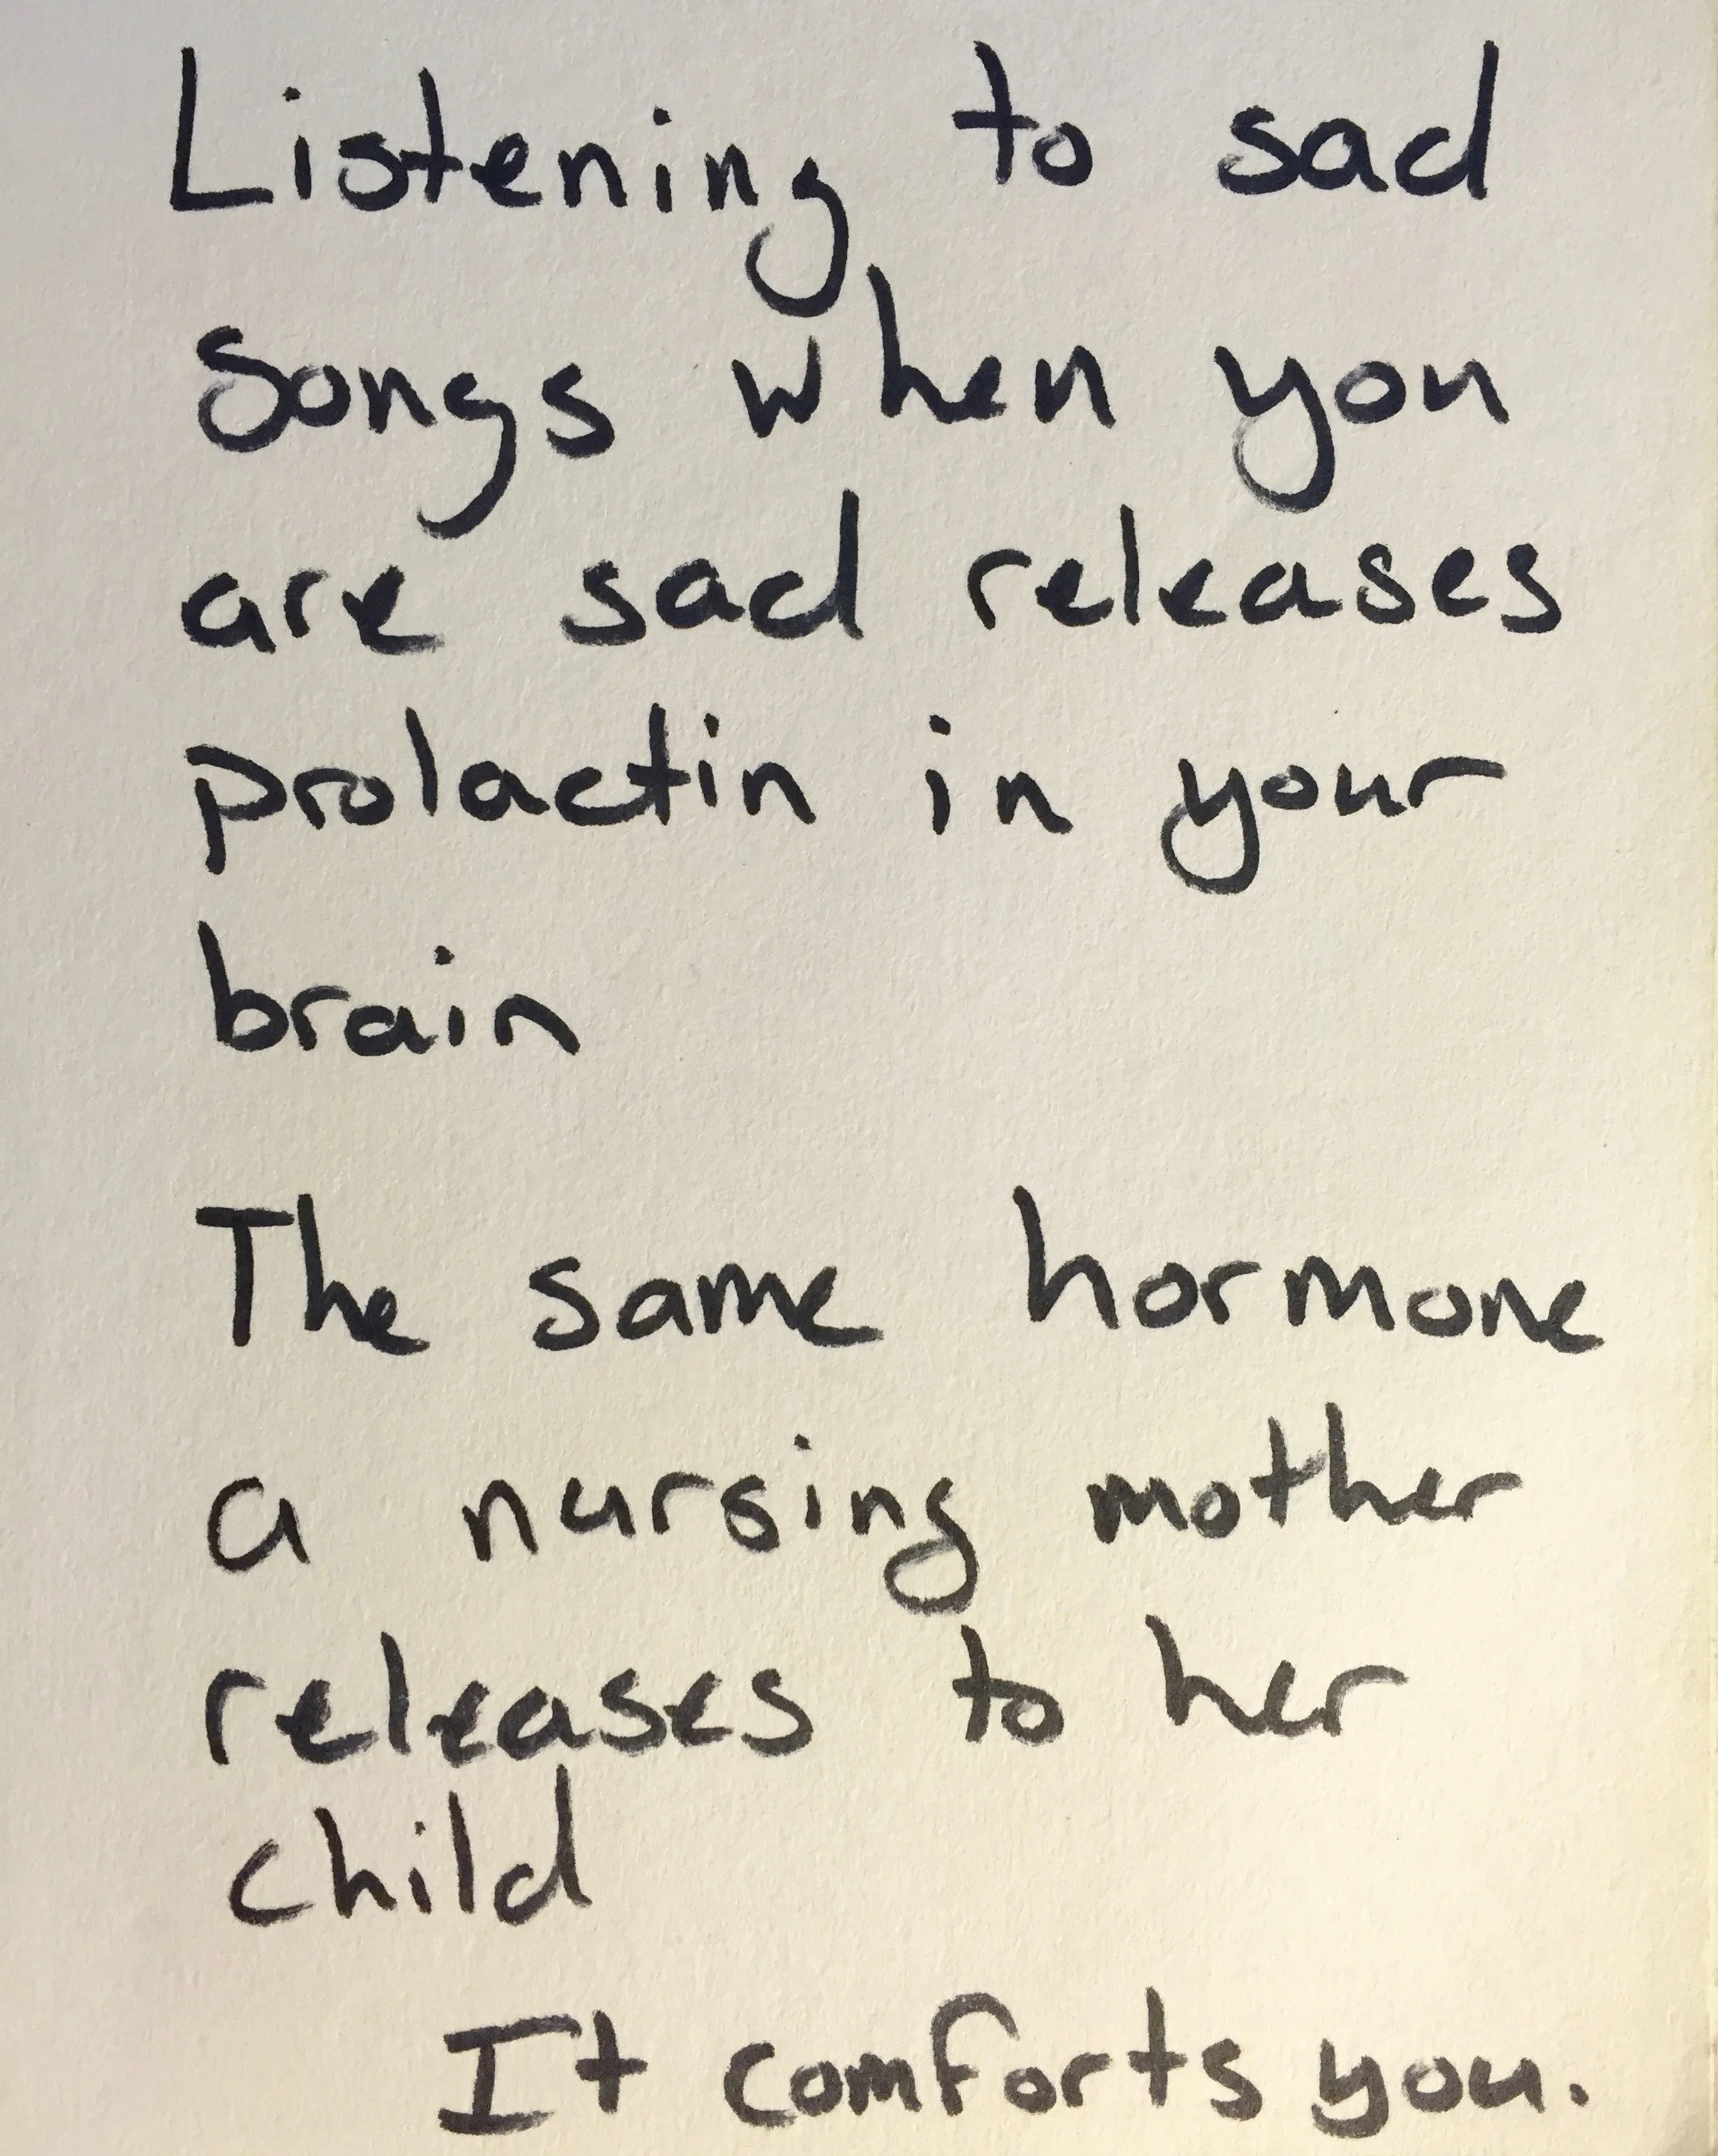 Listening to sad
songs when you
are sad releases
prolactin in your
brain
The same hormone
a nursing mother
releases to her
child
It comforts you.